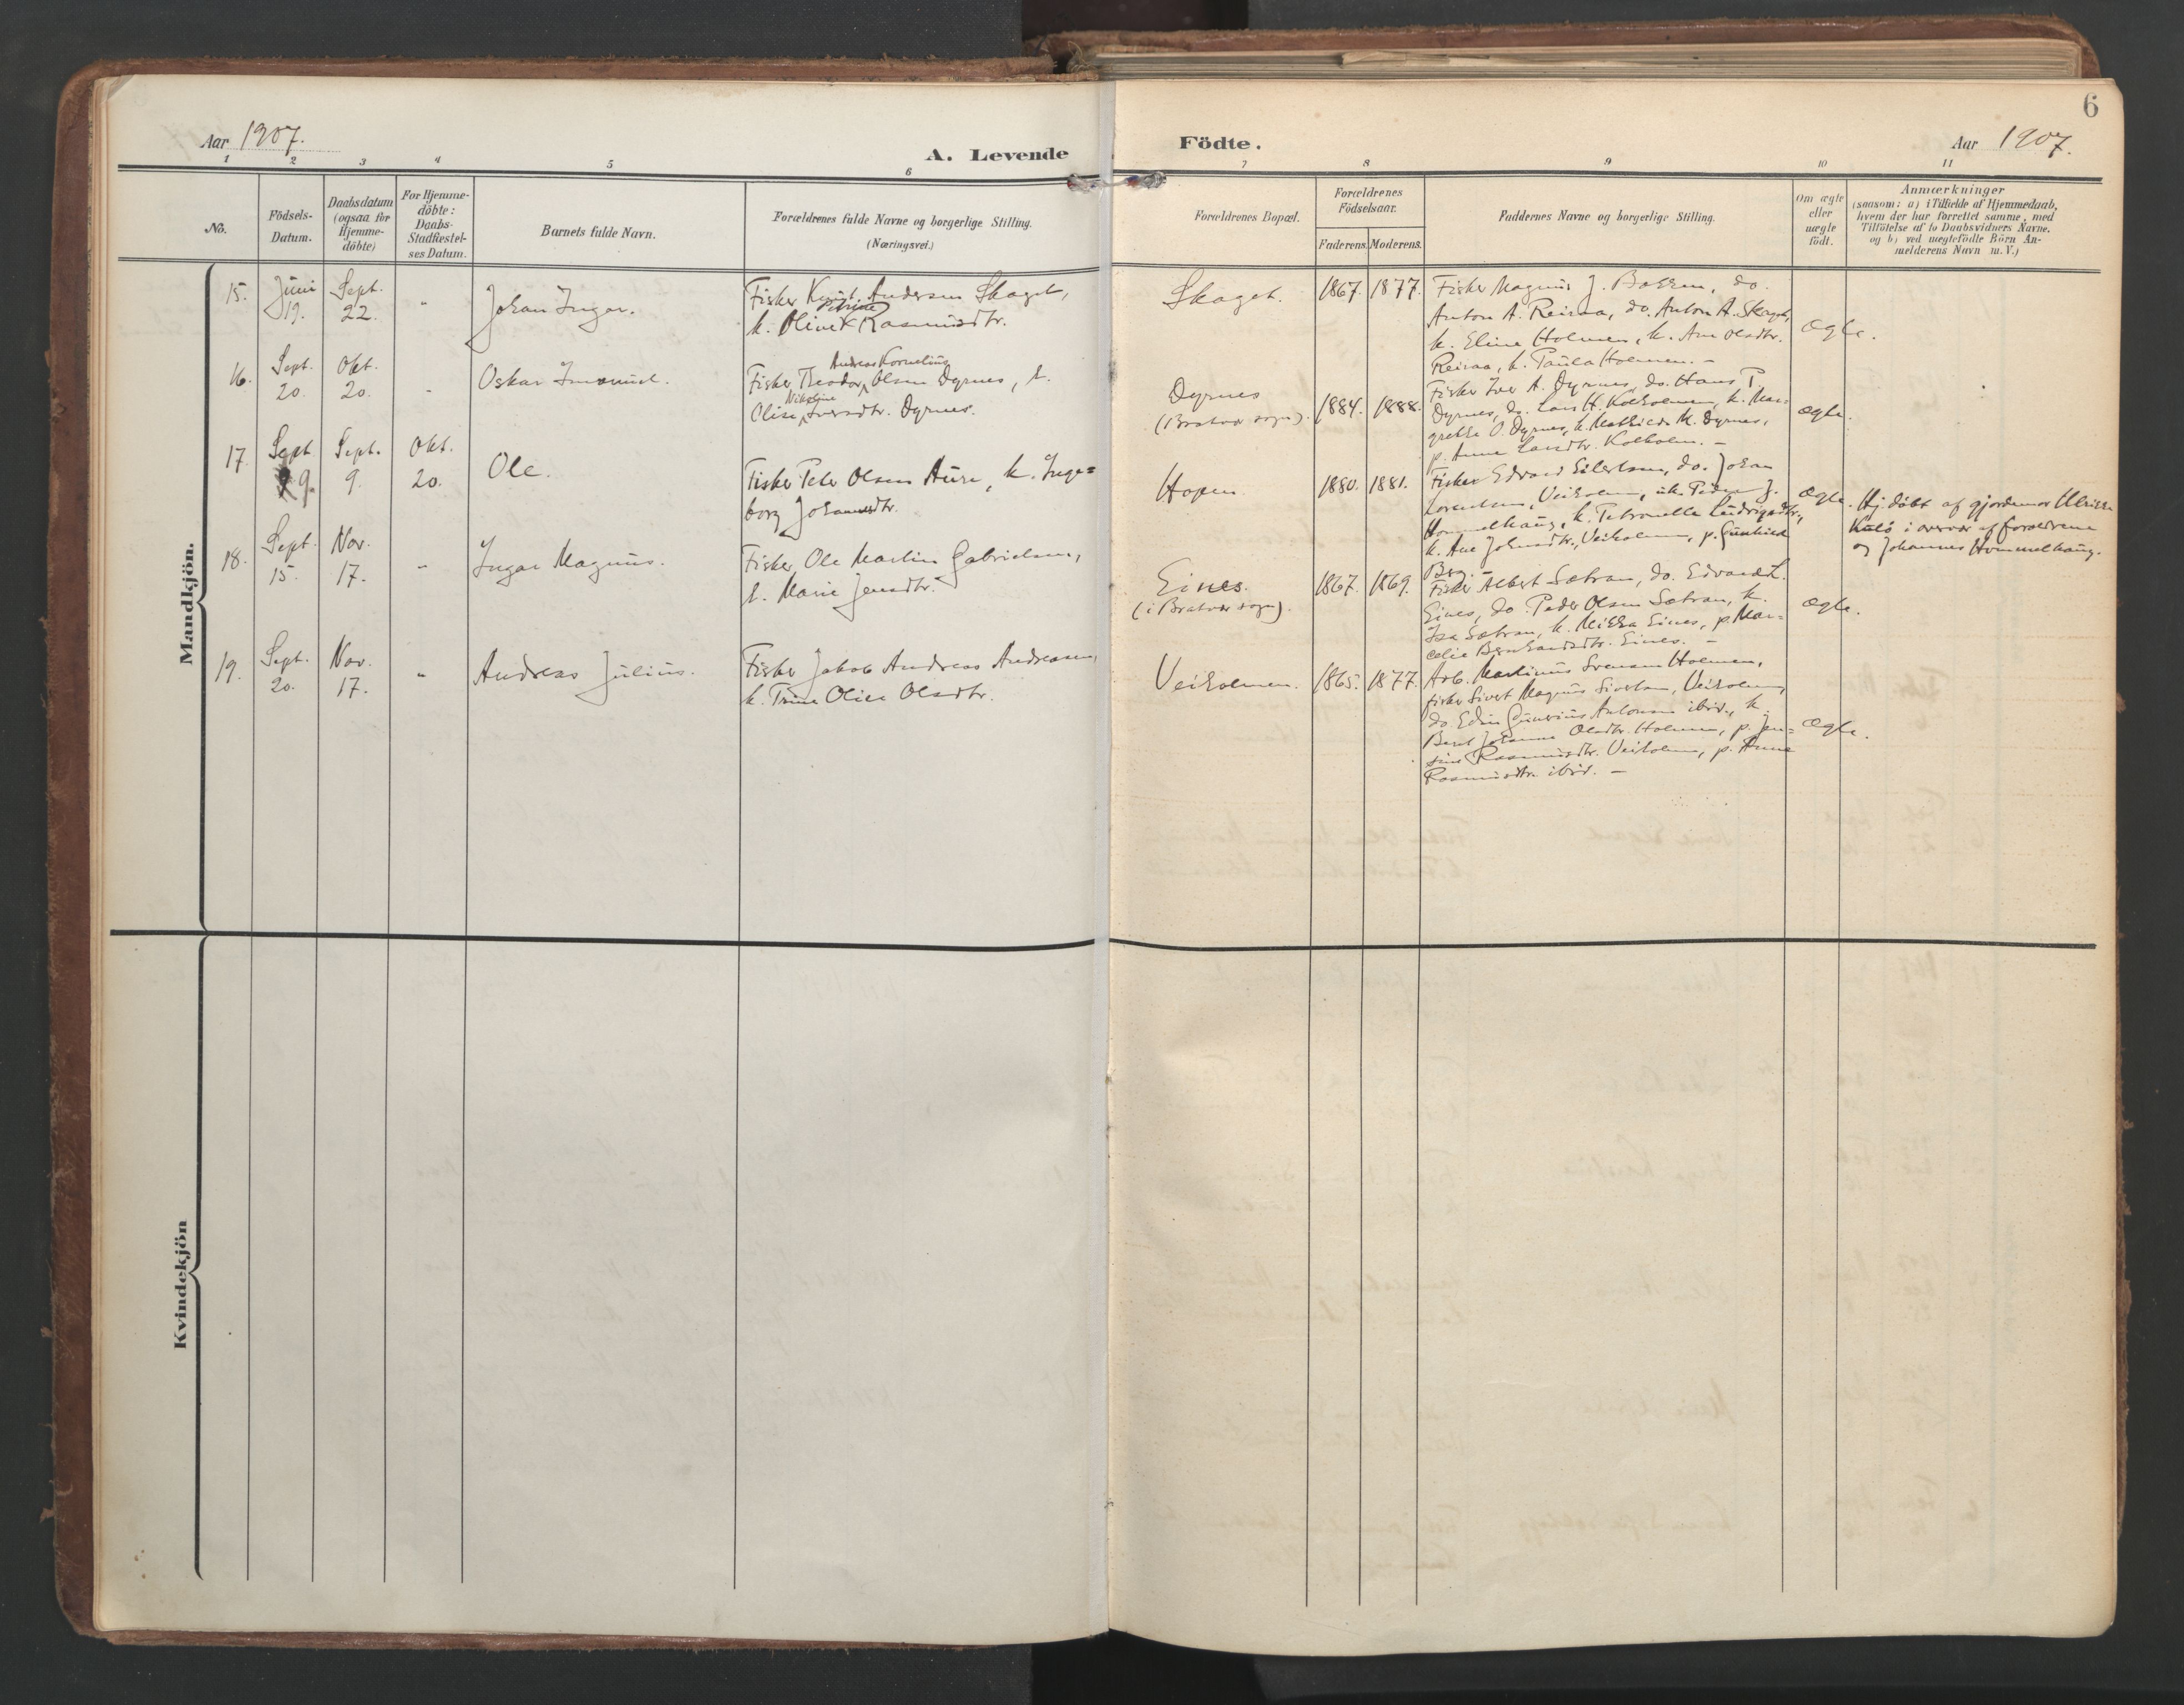 6
Aar 1907.
A. Levende Födte.
Aar 1907.
1 2 3 4 5 6 7 8 9 10 11
No.
Födsels-
Datum.
Daabsdatum
(ogsaa for
Hjemme-
döbte)
For Hjemme-
döbte:
Daabs-
Stadfæstel-
ses Datum.
Barnets fulde Navn.
Forældrenes fulde Navne og borgerlige Stilling.
(Næringsvei.)
Forældrenes Bopæl.
Forældrenes
Födselsaar.
Faderens. Moderens.
Faddernes Navne og borgerlige Stilling.
Om ægte
eller
uægte
födt.
Anmærkninger
(saasom: a) i Tilfælde af Hjemmedaab,
hvem der har forrettet samme, med
Tilföielse af to Daabsvidners Navne,
og b) ved uegtefödte Börn An-
melderens Navn m. V.)
Mandkjön.
15.
Juni
19.
Sept.
22.
"
Johan Ingar.
Fisker Andersen Skaget,
Petrine
k. Oline Rasmusdtr.
Skaget.
1867. 1877.
Fisker Magnus J. Bokken, do.
Anton A. Reiraa, do. Anton A. Skaget,
k. Eline Holmen, k. Ane Olsdtr.
Reiraa, k. Paula Holmen. –
Ægte.
16.
Sept.
20.
Okt.
20.
"
Oskar
Andreas Kornelius
Fisker Theodor Olsen Dyrnes, k.
Nikoline
Olise Iversdtr. Dyrnes.
Dyrnes
(Bratvær sogn).
1884. 1888.
Fisker Iver A. Dyrnes, do. Hans P.
Dyrnes, do. Lars H. Kolholmen, k. Mar-
grethe O. Dyrnes, k. Mathilde M. Dyrnes,
p. Anne Larsdtr. Kolholm. –
Ægte.
17.
Sept.
9.
Sept.
9.
Okt.
20.
Ole.
Fisker Peter Olsen Aure, k. Inge=
borg Johannesdtr.
Hopen.
1880. 1881.
Fisker Edvard Eilertsen, do. Johan
Lorentsen, Veiholmen, uk. Peder J.
Hommelhaug, k. Petronelle Ludvigsdtr.,
k. Ane Johnsdtr., Veiholmen, p. Gunhild
Berg. –
Ægte.
Hj. döbt af gjordemor Ulrikke
Kulö i overvær af forældrene
og Johannes Hommelhaug.
18.
Sept.
15.
Nov.
17.
"
Ingar Magnus.
Fisker Ole Martin Gabrielsen,
k. Marie Jensdtr.
Eines.
(i Bratvær sogn).
1867. 1869.
Fisker Albert Sætran, do. Edvard L.
Eines, do. Peder Olsen Sætran, k.
Sætran, k. Mikka Eines, p. Mar=
celie Bernhardsdtr. Eines. –
Ægte.
19.
Sept.
20.
Nov.
17.
"
Andreas Julius.
Fisker Jakob Andreas Andreasen,
k. Trine Olise Olsdtr.
Veiholmen.
1865. 1877.
Arb. Martinus Svensen Holmen,
fisker Sivert Magnus Sivertsen, Veiholmen,
do Edin Gunerius Antonsen ibid., k.
Berit Johanne Olsdtr. Holmen, p. Jen=
sine Rasmusdtr. Veiholmen, p. Anne
Rasmusdtr. ibid. –
Ægte.
Kvindekjön